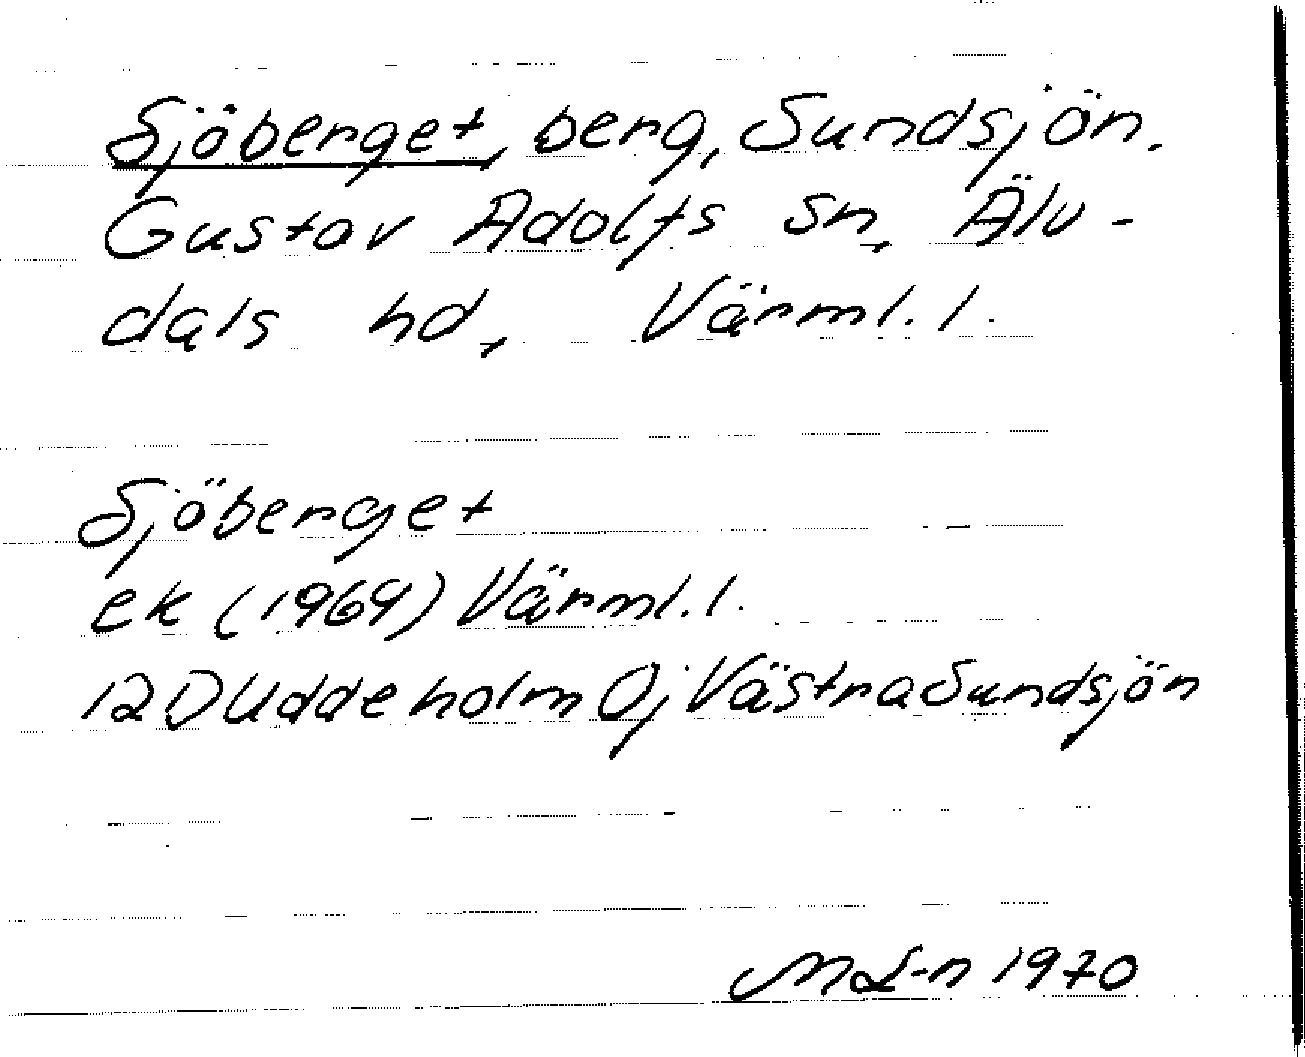 Sjöberget, berg, Sundsjön.
Gustav Adolfs sn, Älv-
dals hd, Värml. l.
Sjöberget
ek (1969) Värml. l.
12D Uddeholm 0j Västra Sundsjön
ML-n 1970